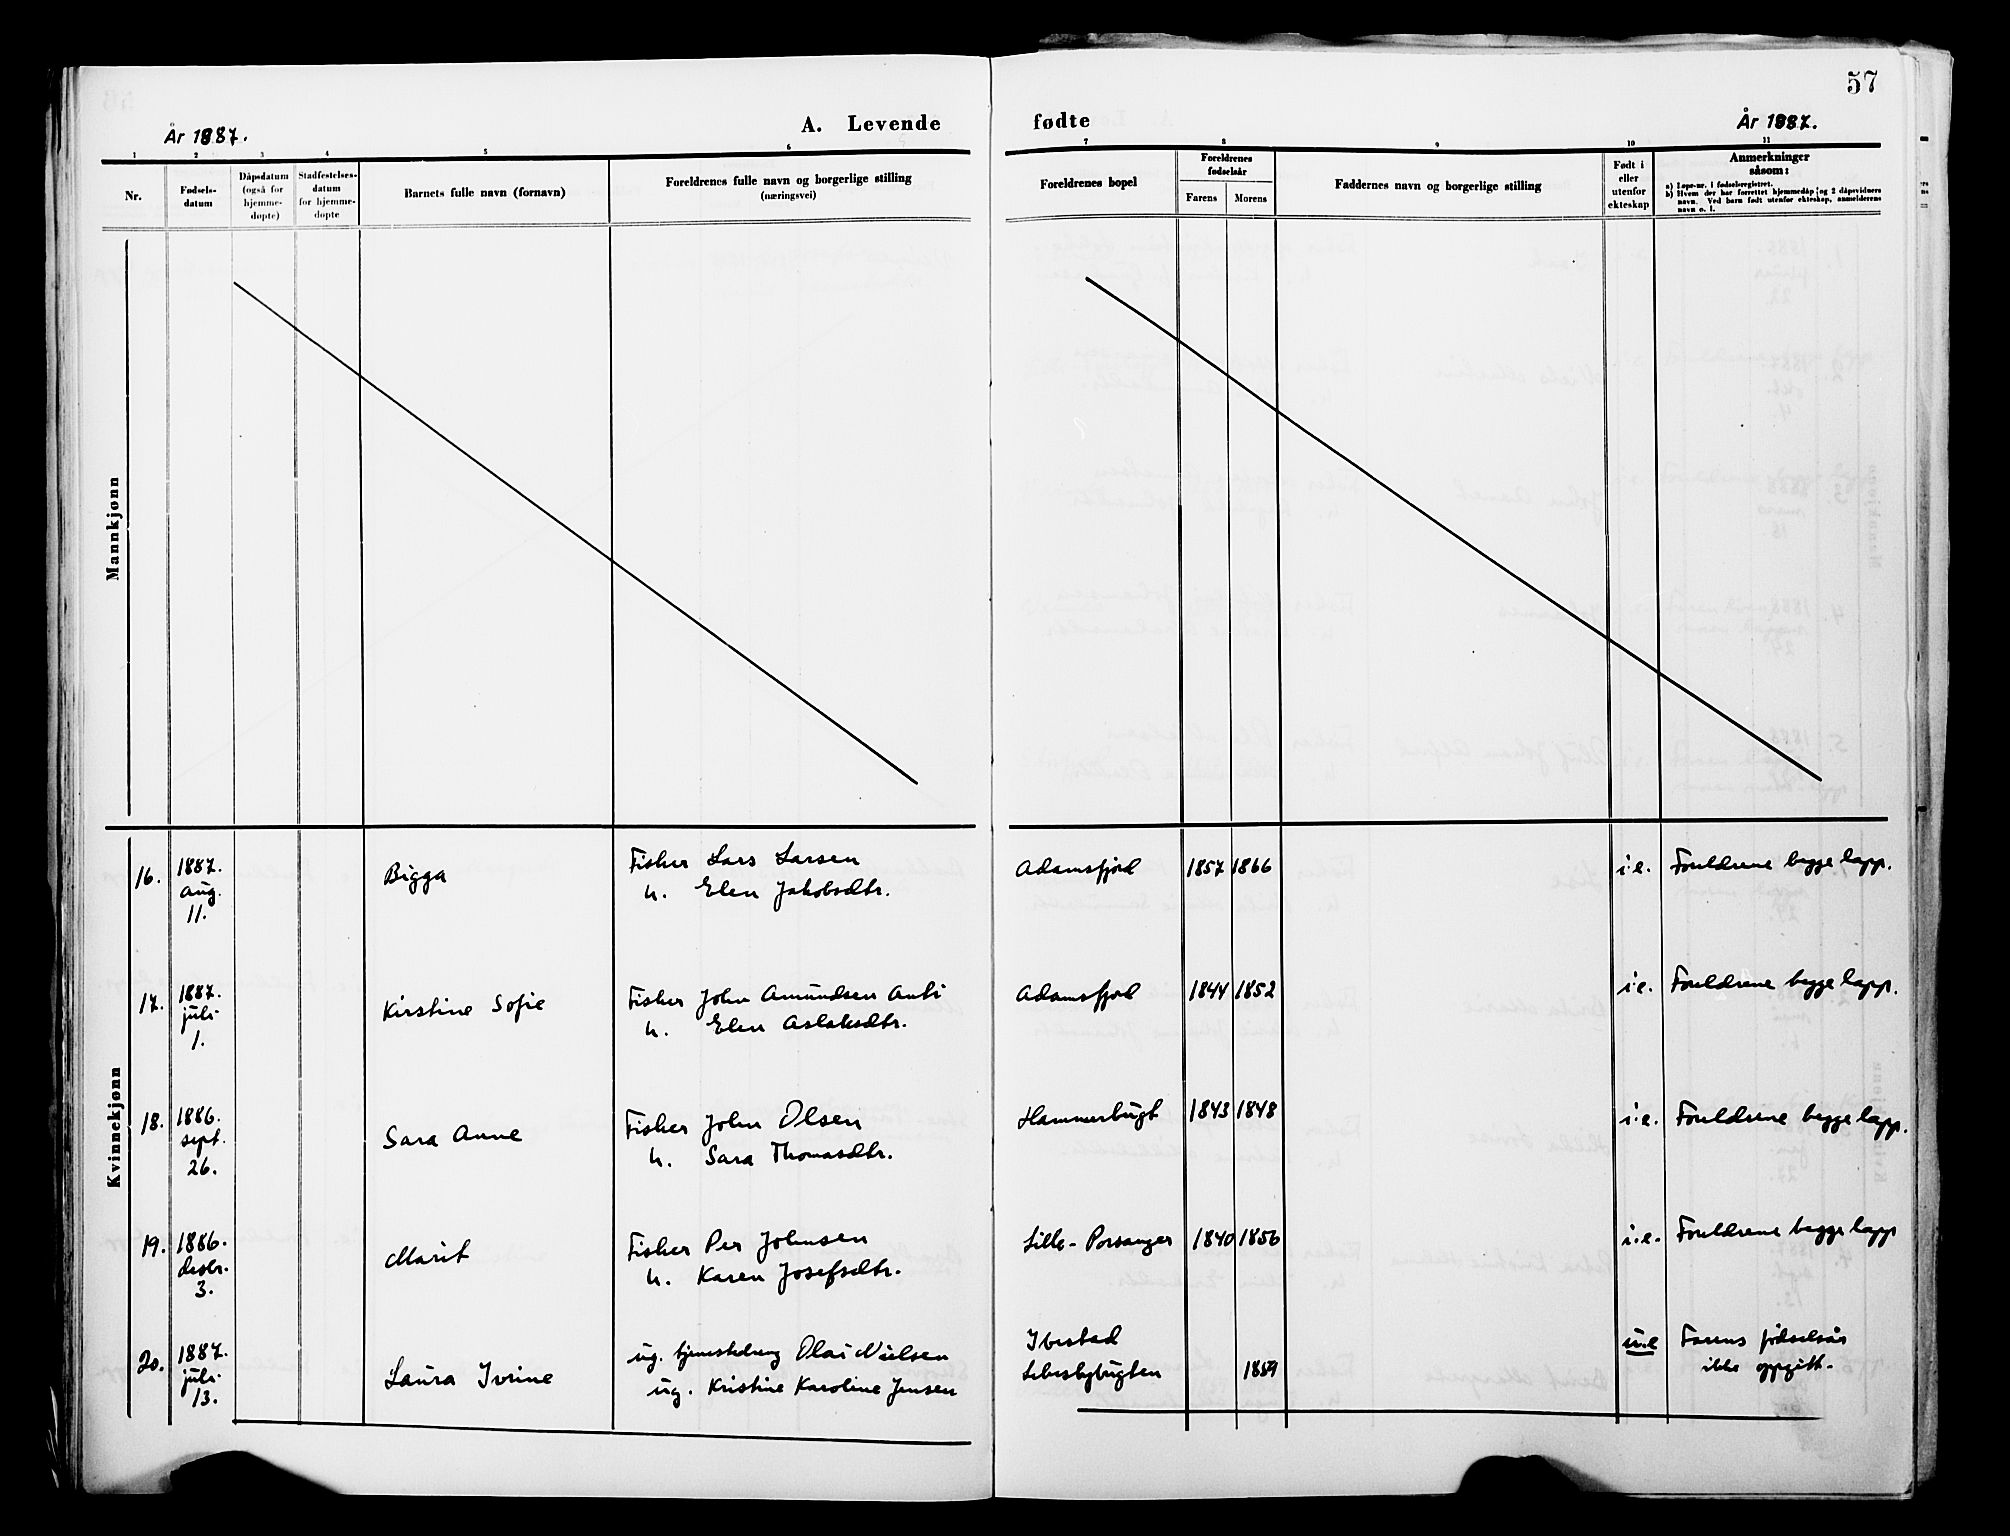 57
År 1887.
A. Levende fødte
År 1887.
1 2 3 4 5 6 7 8 9 10 11
Nr.
Fødsels-
datum
Dåpsdatum
(også for
hjemme-
døpte)
Stadfestelses-
datum
for hjemme-
døpte
Barnets fulle navn (fornavn)
Foreldrenes fulle navn og borgerlige stilling
(næringsvei)
Foreldrenes bopel
Foreldrenes
fødselsår
Farens Morens
Faddernes navn og borgerlige stilling
Født i
eller
utenfor
ekteskap
Anmerkninger
såsom:
a) Løpe-nr. i fødselsregistret.
b) Hvem der har forrettet hjemmedåp og 2 dåpsvidners
navn. Ved barn født utenfor ekteskap, anmelderens
navn o. l.
Mannkjønn
Kvinnekjønn
16.
1887.
aug.
11.
Bigga
Fisker Lars Larsen
h. Elen Jakobsdtr.
Adamsfjord
1857 1866
i.e.
Foreldrene begge lapp.
17.
1887.
juli
1.
Kirstine Sofie
Fisker John Amundsen Anti
h. Elen Aslaksdtr.
Adamsfjord
1844 1852
i.e.
Foreldrene begge lapp.
18.
1886.
sept.
26.
Sara Anne
Fisker John Olsen
h. Sara Thomasdtr.
Hammerbugt
1843 1848
i.e.
Foreldrene begge lapp.
19.
1886.
desbr.
3.
Marit
Fisker Per Johnsen
h. Karen Josefsdtr.
Lille-Porsanger
1840 1856
i.e.
Foreldrene begge lapp
20.
1887.
juli
13.
Laura Ivrine
ug. tjenestedreng Olai Nielsen
ug. Kristine Karoline Jensen
Ibestad
Lebesbybugten
1859
u.e
Farens fødselsår
ikke oppgitt.